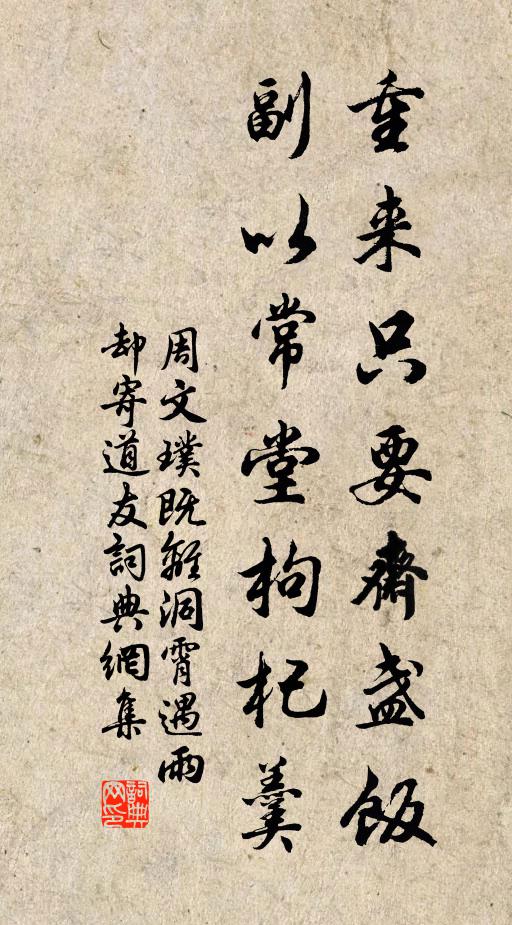 重来只要齋盏飯
副以常堂枸杞羹
周文璞既離洞霄遇雨
却寄道友詞典網集
詞典
网印